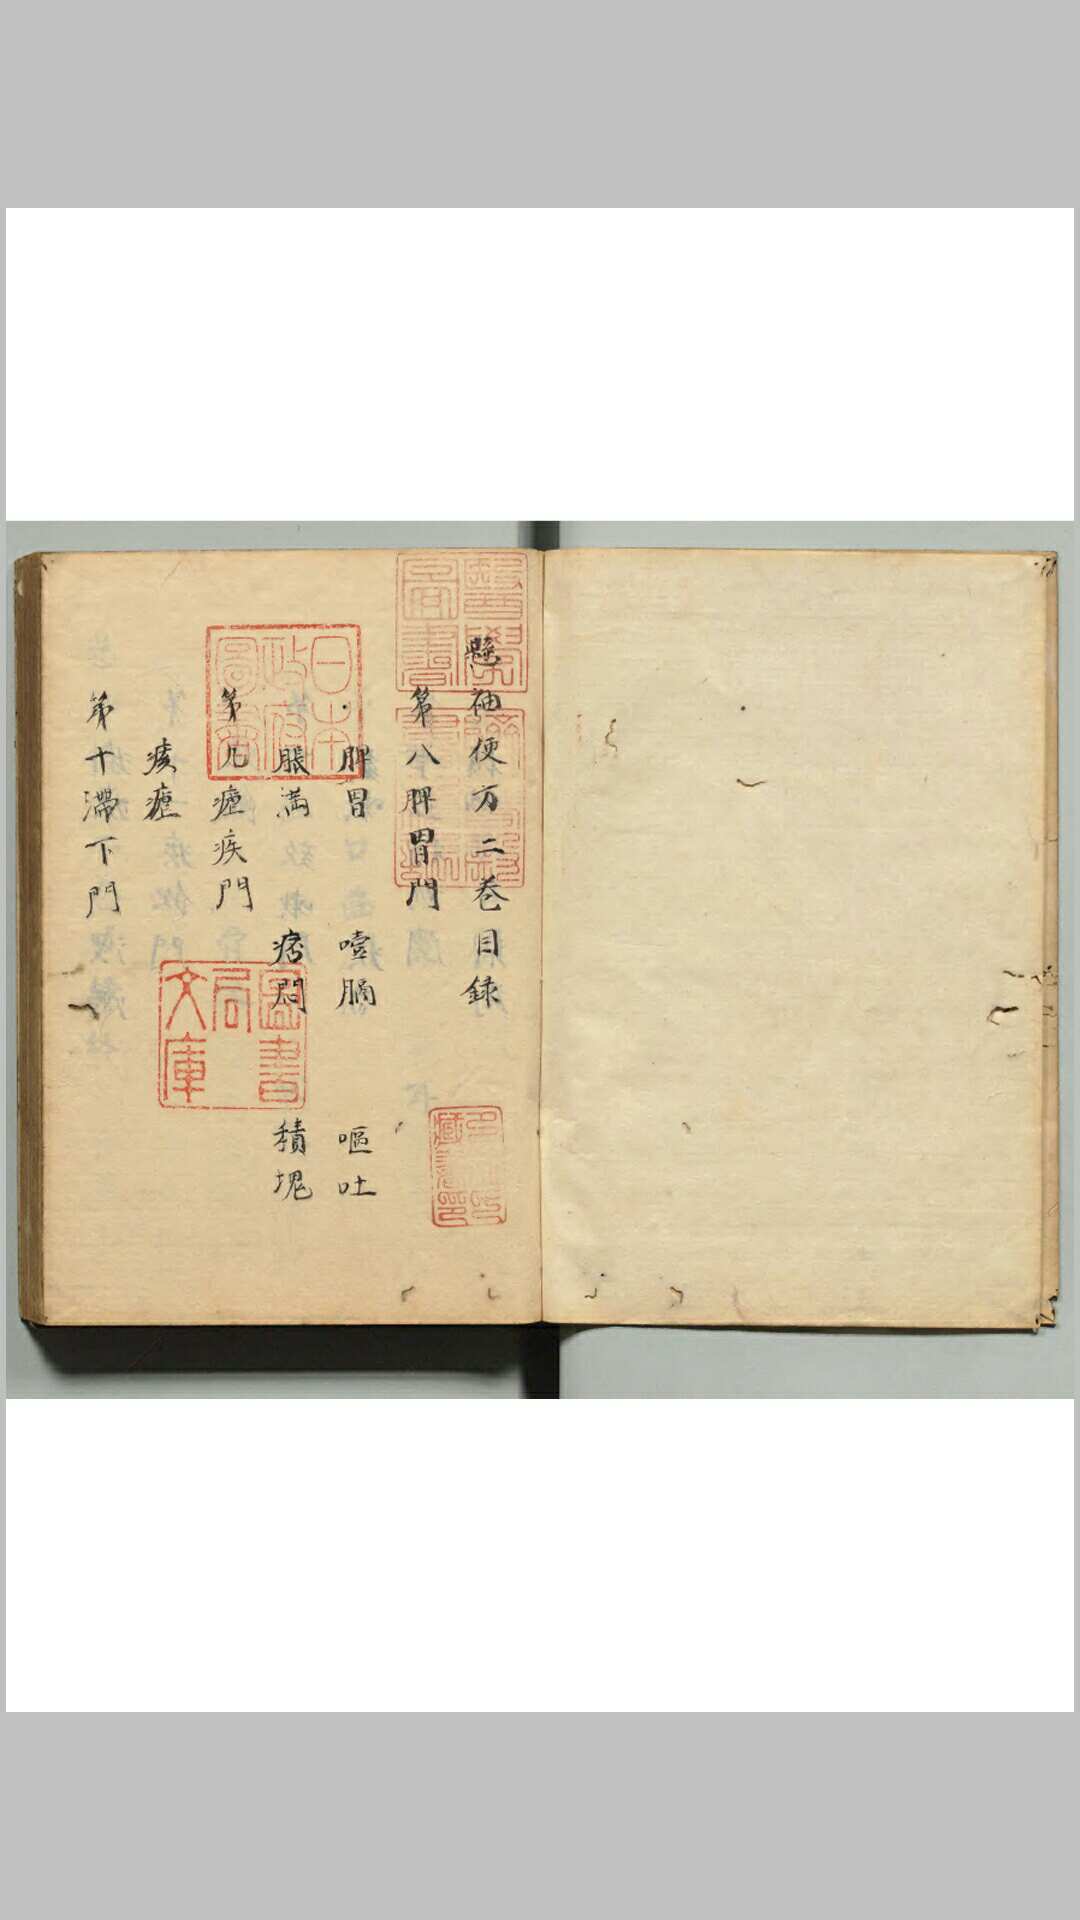 懸袖便方二巻目録
第八脾胃門
脾胃 噎膈 嘔吐
脹満 痞悶 積塊
第九瘧疾門
痎瘧
第十滯下門
醫學圖書
日本政府圖書
圖書局文庫